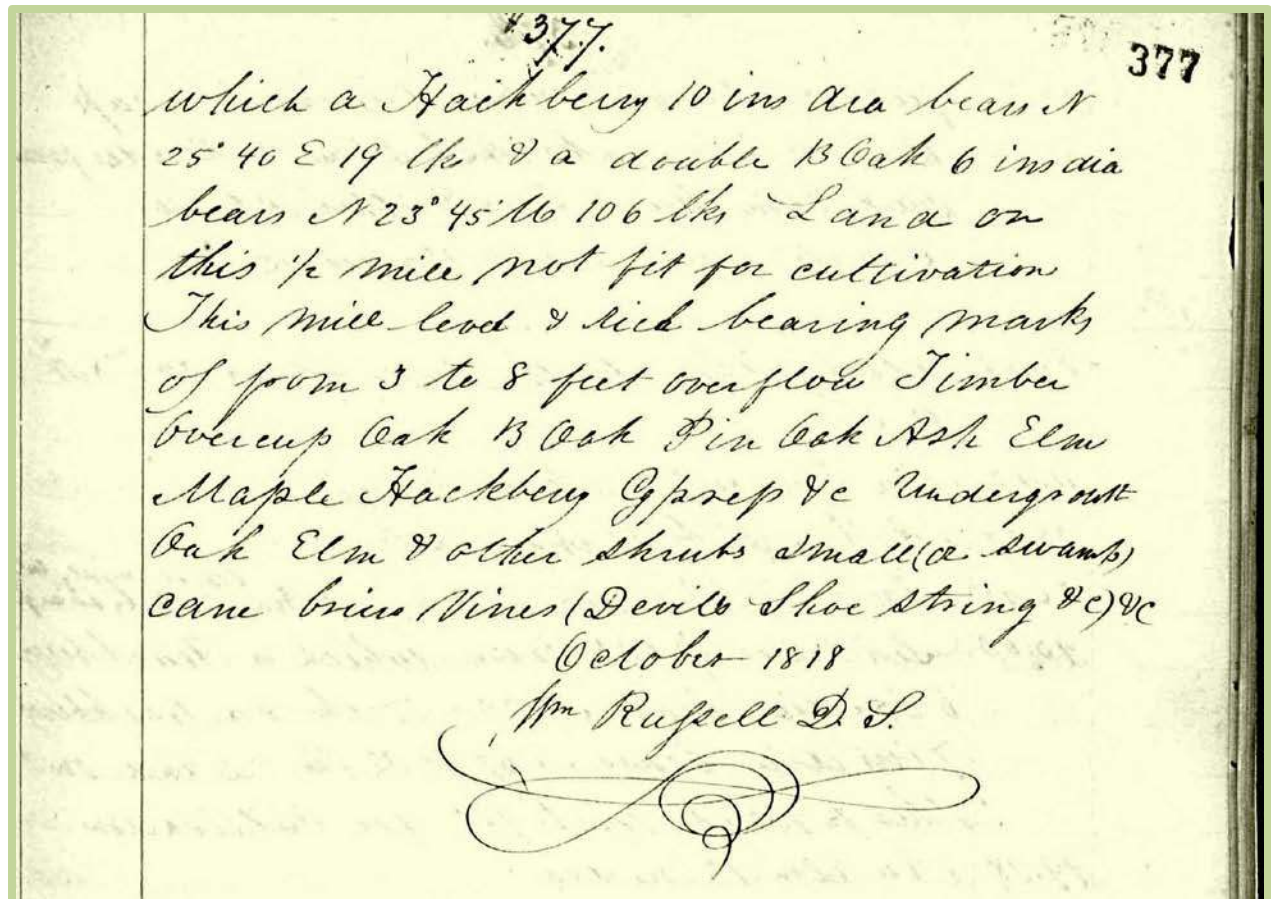 377.
377
which a Hackberry 10 ins dia bears N
25° 40 E 19 lks & a double B Oak 6 ins dia
bears N 23° 45' W 106 lks Land on
this 1/2 mile not fit for cultivation
This mile level & rich bearing marks
of from 3 to 8 feet overflow Timber
Overcup Oak B Oak Pin Oak Ash Elm
Maple Hackberry Cypress &c Undergrowth
Oak Elm & other shrubs small (or swamp)
cane briers Vines (Devils Shoe string &c) &c
October 1818
Wm Russell D. S.